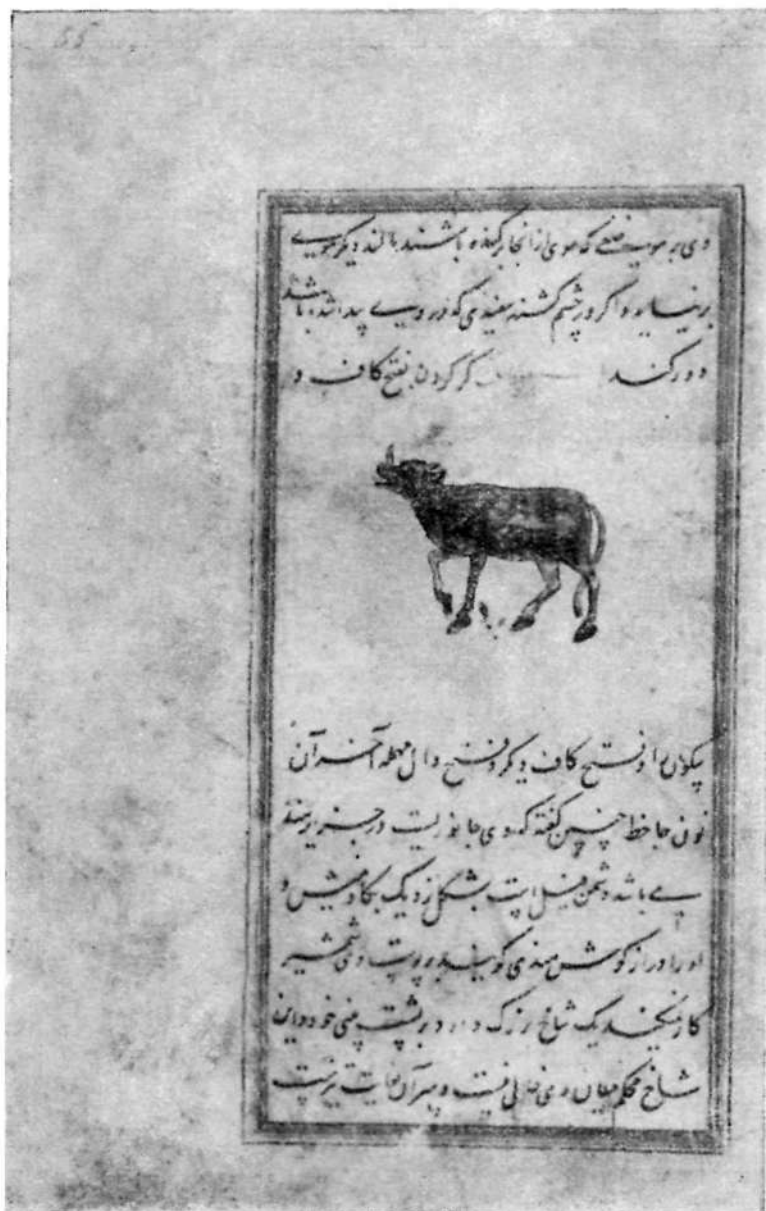 وی بر موضعی که موی از آنجا برکنده باشند بمالند دیگر موی
برنیاید و اگر در چشم کشند سفیدی که در وی پیدا شده باشد
دور کند کرکدن بفتح کاف و
سکون را و فتح کاف دیگر و فتح دال مهمله آخر آن
نون جاحظ چنین گفته که وی جانوریست در جزیره هند
می باشد دشمن فیل است بشکل نزدیک بگاومیش و
او را درازگوش هندی گویند بر پوست وی شمشیر
کار نمیکند یک شاخ بزرگ دارد بر پشت بینی خود و این
شاخ محکم میان وی خالی نیست و سر آن بغایت تیزست